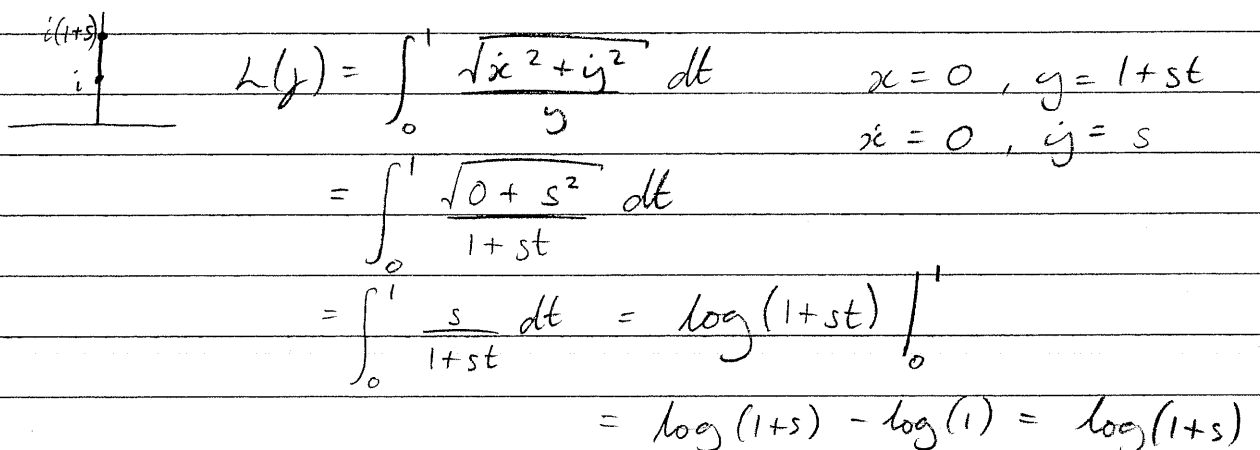 i(1+s)
i
L(γ) = ∫₀¹ √(ẋ² + ẏ²) / y dt    x = 0 , y = 1 + st
ẋ = 0 , ẏ = s
= ∫₀¹ √(0 + s²) / (1 + st) dt
= ∫₀¹ s / (1 + st) dt = log(1+st) |₀¹
= log(1+s) - log(1) = log(1+s)